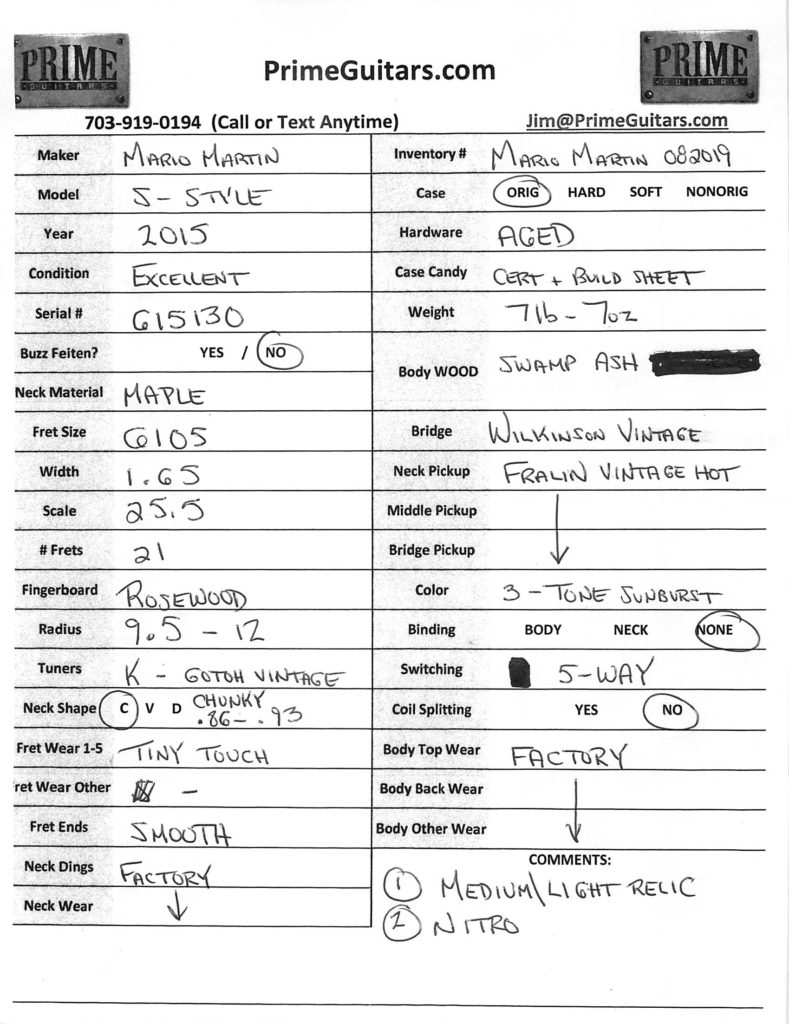 PRIME
GUITARS
PrimeGuitars.com
PRIME
GUITARS
703-919-0194 (Call or Text Anytime)
Jim@PrimeGuitars.com
Maker MARIO MARTIN
Model S - STYLE
Year 2015
Condition EXCELLENT
Serial # 615130
Buzz Feiten? YES / NO
Neck Material MAPLE
Fret Size 6105
Width 1.65
Scale 25.5
# Frets 21
Fingerboard ROSEWOOD
Radius 9.5 - 12
Tuners K - GOTOH VINTAGE
Neck Shape C V D CHUNKY
.86 - .93
Fret Wear 1-5 TINY TOUCH
ret Wear Other -
Fret Ends SMOOTH
Neck Dings FACTORY
Neck Wear
Inventory # MARIO MARTIN 082019
Case ORIG HARD SOFT NONORIG
Hardware AGED
Case Candy CERT + BUILD SHEET
Weight 7lb - 7oz
Body WOOD SWAMP ASH
Bridge WILKINSON VINTAGE
Neck Pickup FRALIN VINTAGE HOT
Middle Pickup
Bridge Pickup
Color 3 - TONE SUNBURST
Binding BODY NECK NONE
Switching 5-WAY
Coil Splitting YES NO
Body Top Wear FACTORY
Body Back Wear
Body Other Wear
COMMENTS:
1 MEDIUM\LIGHT RELIC
2 NITRO